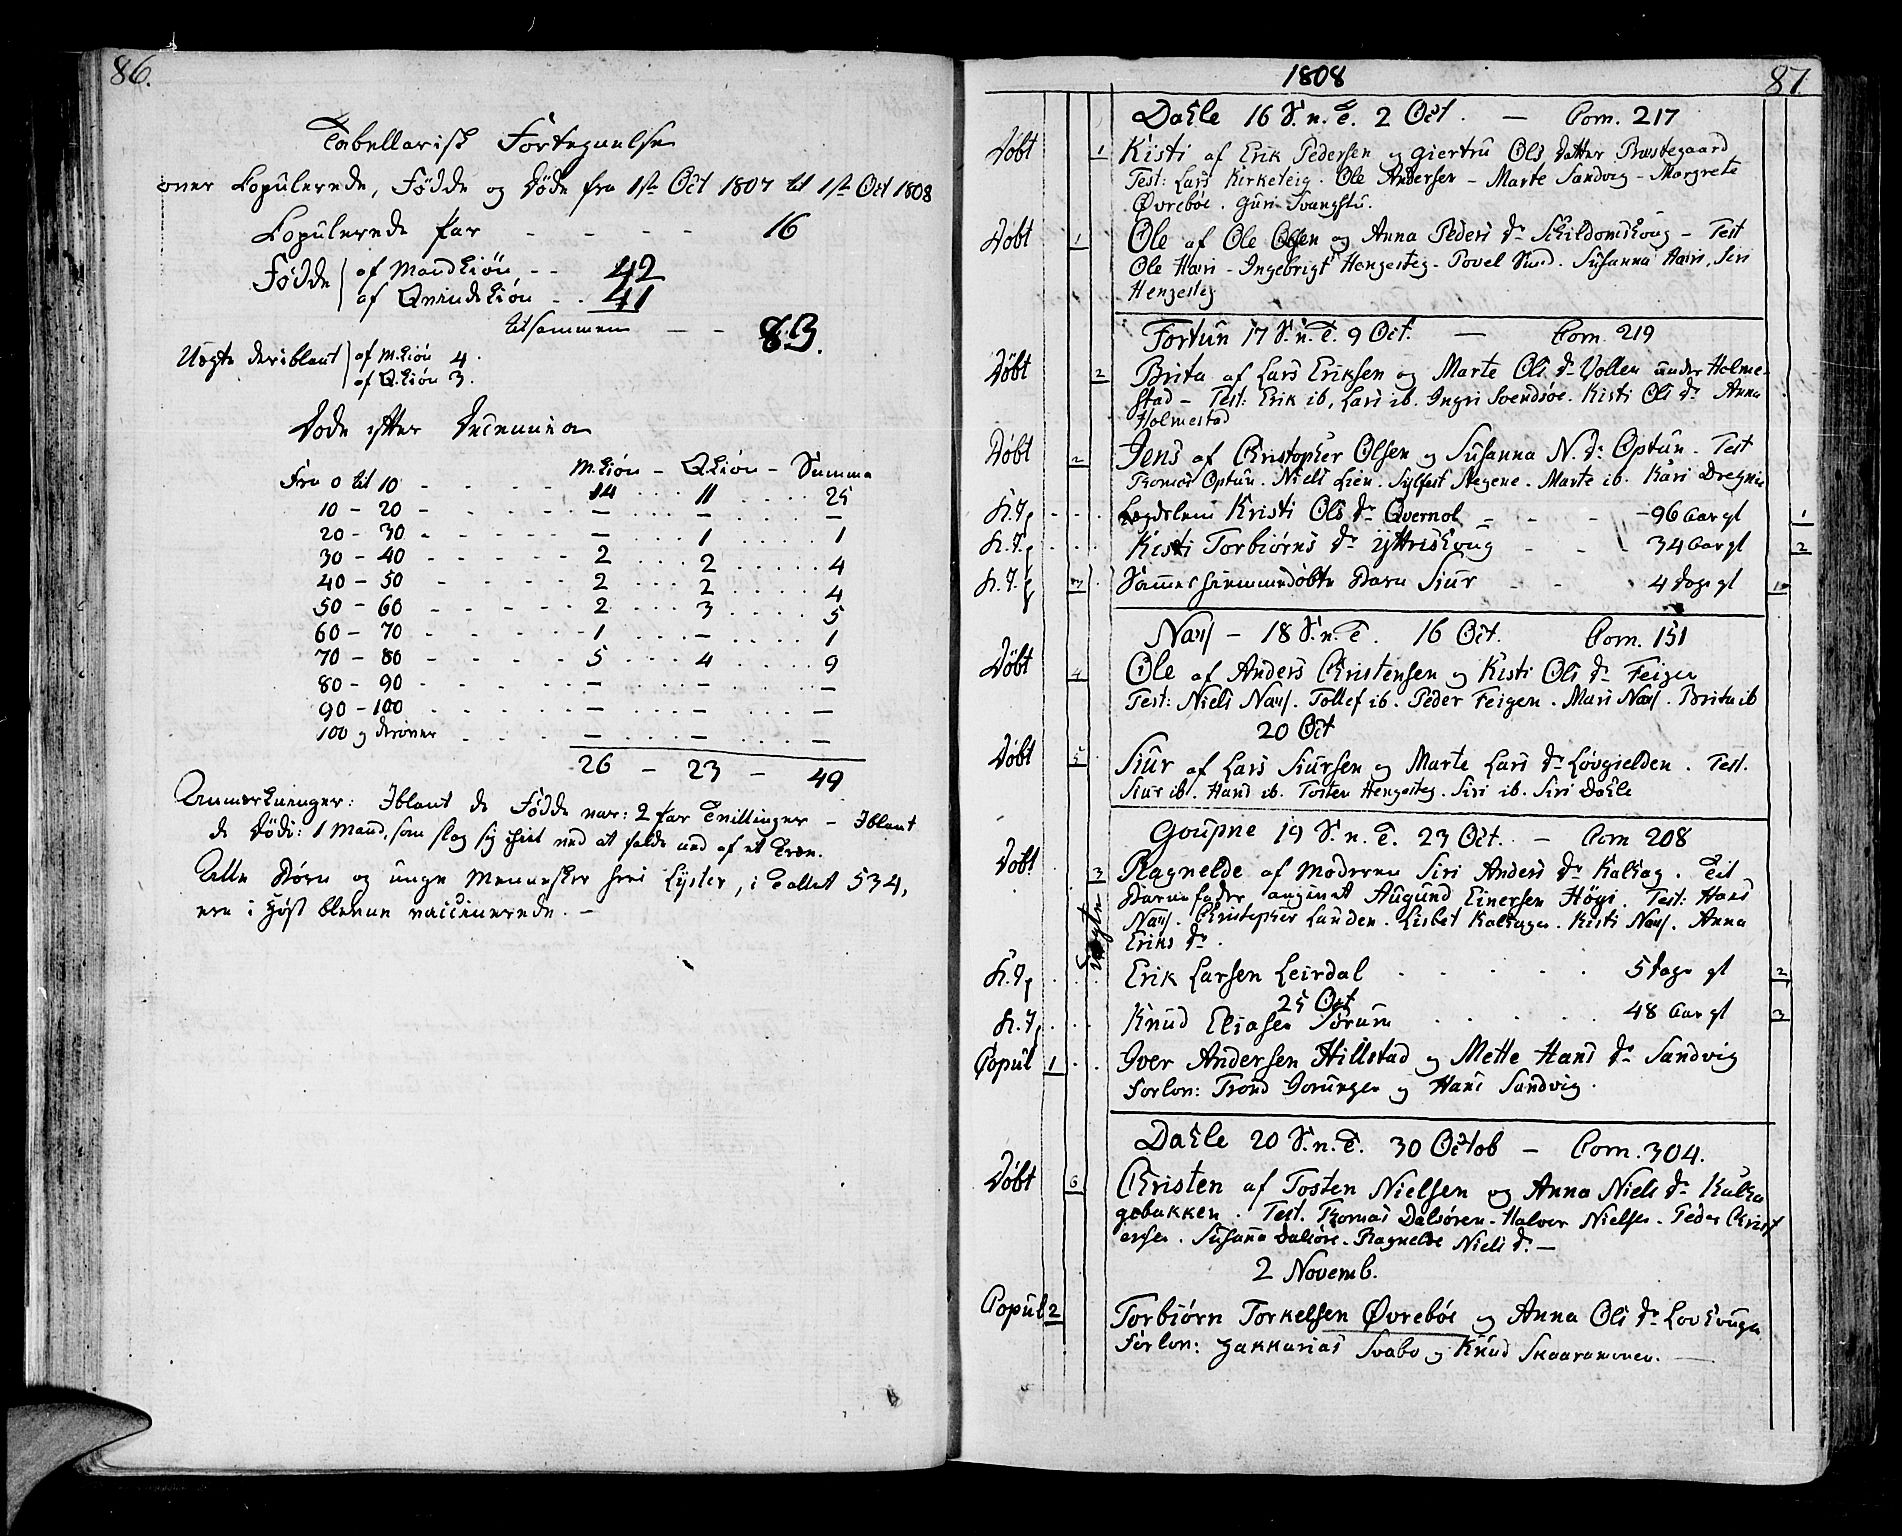 86.
Tabellarisk Fortegnelse
over Copulerede, Fødde og Døde fra 1ste Oct 1807 til 1ste Oct 1808
Copulerede Par - - - - 16
Fødde af Mandkiøn - - 42
af Qvindekiøn - - 41
tilsammen - - 83.
Uægte deriblant af M.kiøn 4.
af Q.kiøn 3.
Døde efter Decennia
M.kiøn - Q.kiøn - Summa
Fra 0 til 10 - - - - - 14 ... 11 .... 25
10 - 20 - - - - - — ... — .... —
20 - 30 - - - - - — ... 1 .... 1
30 - 40 - - - - - 2 ... 2 .... 4
40 - 50 - - - - - 2 ... 2 .... 4
50 - 60 - - - - - 2 ... 3 .... 5
60 - 70 - - - - - 1 ... — .... 1
70 - 80 - - - - - 5 ... 4 .... 9
80 - 90 - - - - - — ... — .... —
90 - 100 - - - - - — ... — .... —
100 og derover - - - - — ... — .... —
26 - 23 - 49
Anmærkninger: Iblant de Fødde var: 2 par Tvillinger - Iblant
de Døde: 1 Mand, som slog sig ihiel ved at falde ned af et Træe.
Alle Børn og unge Mennesker her i Lyster, i Tallet 534,
ere i Høst blevne vaccinerede. -
1808
87.
Dahle 16 S. n. T. 2 Oct. — Com. 217
Døbt 1 Kisti af Erik Pedersen og Giertru Ols Datter Præstegaard
Test: Lars Kirketeig. Ole Andersen - Marte Sandvig - Margrete
Øvrebøe. Guri
Døbt 1 Ole af Ole Olsen og Anna Peders Dr - Test
Ole Hans - Ingebrigt Hengesteg - Povel Sund. Susanna Hans, Siri
Hengesteg
Fortun 17 S. n. T. 9 Oct. — Com. 219
Døbt 2 Brita af Lars Eriksen og Marte Ols Dr Vollen under Holme-
stad - Test: Erik ib, Lars ib. Ingri Svendsøe. Kisti Ols Dr Anna
Holmestad
Døbt 2 Jens af Christopher Olsen og Susanna N. Dr Optun. Test
Thomas Optun. Niels Lien. Sylfest Aegene. Marte ib. Kari Dregnie
Kristi Ols Dr Qvernol - - - 96 Aar gl 1
Kisti Torbiørns Dr - - 34 Aar gl 2
Sammes hiemmedøbte Barn Siur - - 4 dage gl
Næs - 18 S. n. T. 16 Oct. Com. 151
Døbt 4 Ole af Anders Christensen og Kisti Ols Dr Feigen
Test: Niels Næs. Tollef ib. Peder Feigen. Mari Næs. Brita ib
20 Oct
Døbt 5 Siur af Lars Siursen og Marte Lars Dr Løvgielden. Test.
Siur ib. Hans ib. Tosten Hengesteg. Siri ib. Siri Dahle
Goupne 19 S. n. T. 23 Oct. — Com 208
Døbt 3 Ragnelde af Moderen Siri Anders Dr Kalhag. Til
uægte
Barnefader angivet Augund Einersen Høgi. Test: Hans
Næs. Christopher Lunden. Lisbet Kalhagen. Kisti Næs. Anna
Eriks Dr.
Erik Larsen Leirdal - - - 5 dage gl 2
25 Oct
Knud Eliasen Sørum - - - 48 Aar gl 3
Copul 1 Iver Andersen Hillestad og Mette Hans Dr Sandvig
Forlov: Trond Gorungen og Hans Sandvig.
Dahle 20 S. n. T. 30 Octob — Com. 304.
Døbt 6 Christen af Tosten Nielsen og Anna Niels Dr Kalha
gebakken. Test. Thomas Dalsøren - Halvor Nielsen. Peder Christ
ensen. Susanna Dalsøre. Ragnelde Niels Dr. —
2 Novemb.
Copul 2 Torbiørn Torkelsen Øvrebøe og Anna Ols Dr
Forlov: Zakkarias Svabo og Knud Skaaramoven. —